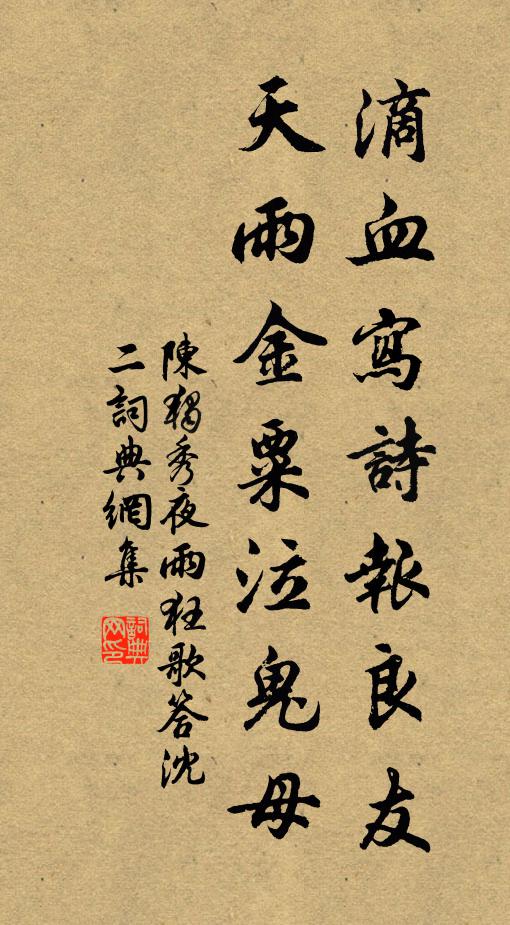 滴血寫詩報良友
天雨金粟泣鬼母
陳獨秀夜雨狂歌答沈
二詞典網集
詞典
网印